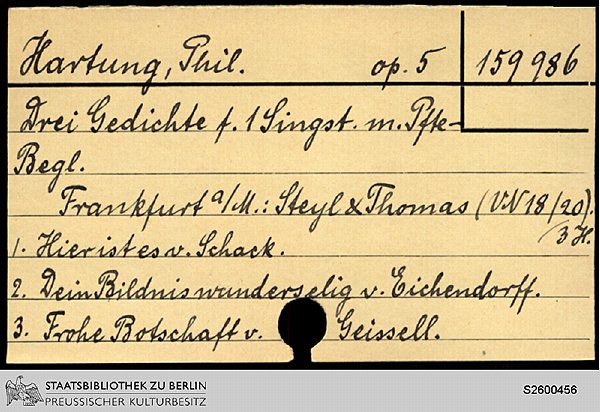 Hartung, Phil. op. 5 159 986
Drei Gedichte f. 1 Singst. m. Pfte-
Begl.
Frankfurt a/M.: Steyl & Thomas (VN 18/20).
3 H.
1. Hier ist es v. Schack.
2. Dein Bildnis wunderselig v. Eichendorff.
3. Frohe Botschaft v. Geissell.
STAATSBIBLIOTHEK ZU BERLIN
PREUSSISCHER KULTURBESITZ
S2600456